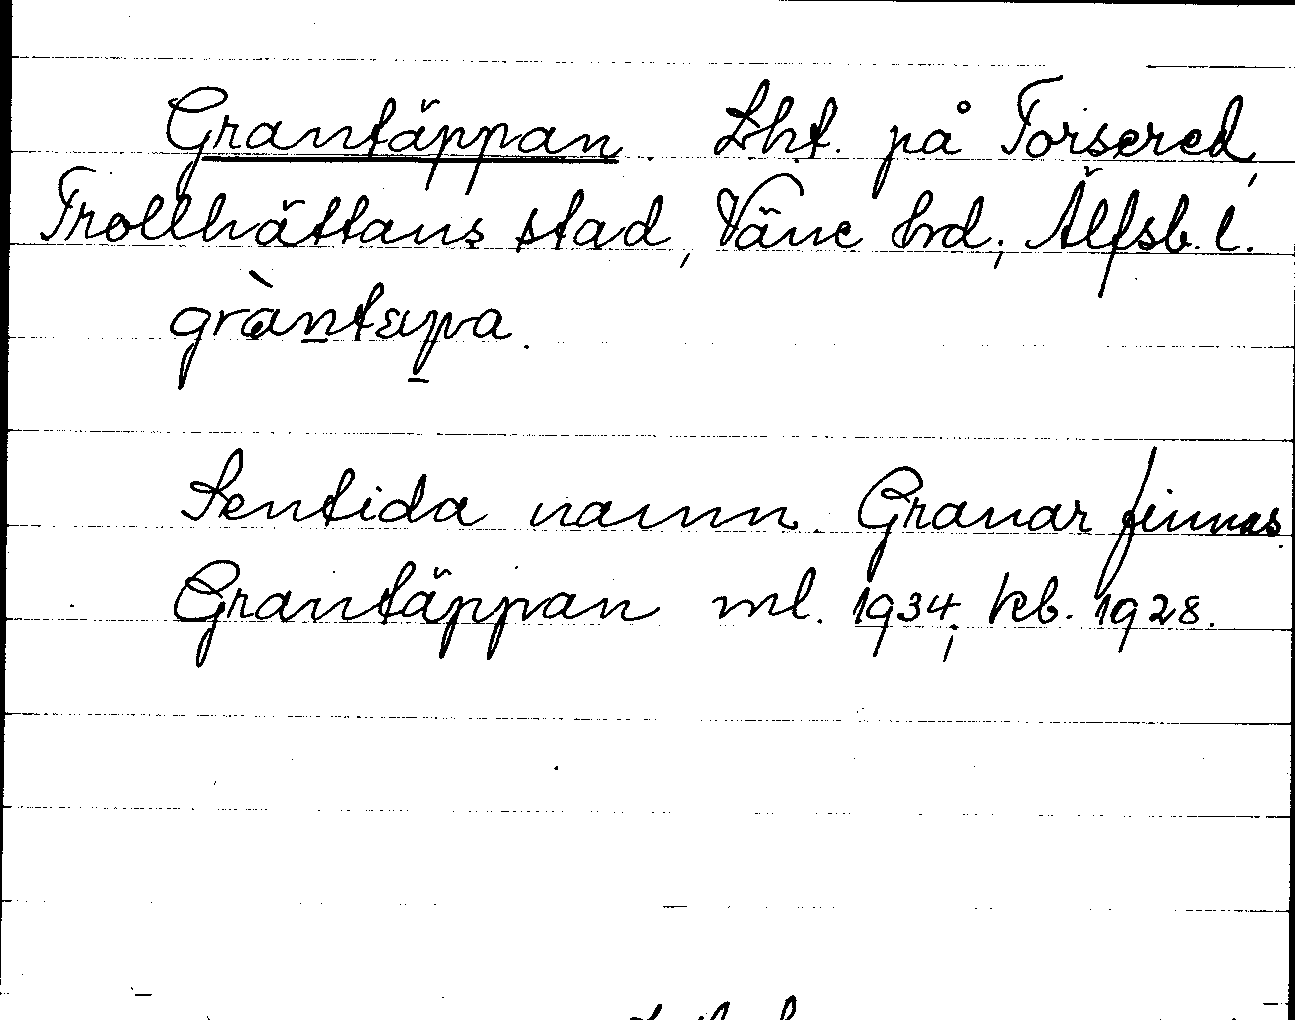 Grantäppan. Lht. på Torsered,
Trollhättans stad, Väne hrd; Älfsb. l.
gràntɛpa.
Sentida namn. Granar finnas.
Grantäppan ml. 1934; kb. 1928.